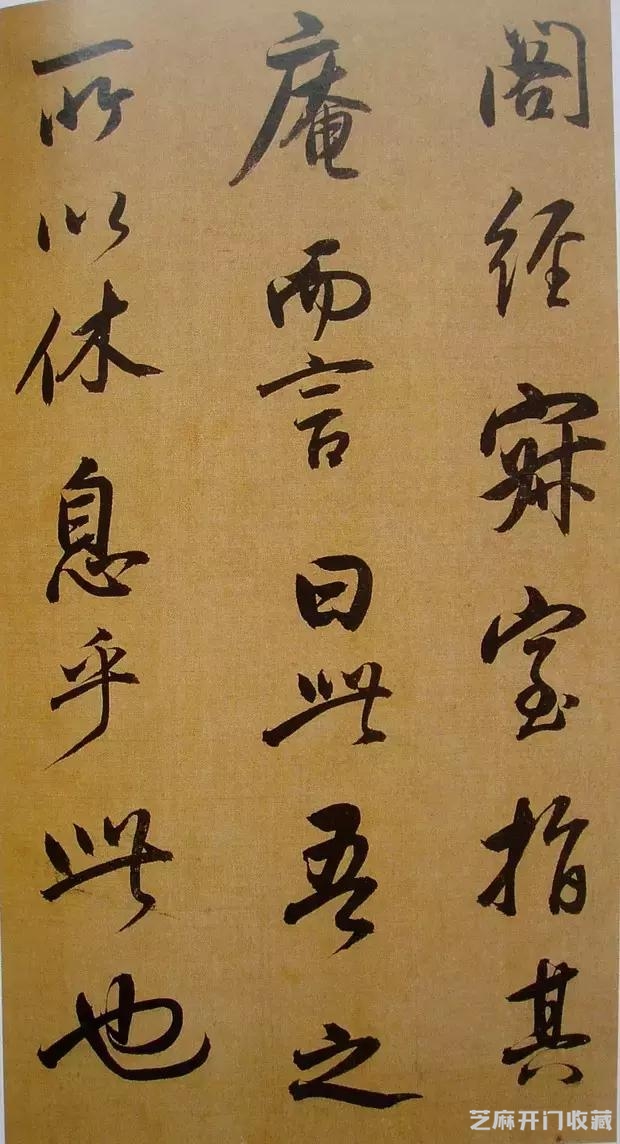 閣經寂室指其
庵而言曰此吾之
所以休息乎此也
芝麻开门收藏